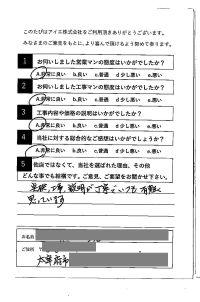 このたびはアイエ株式会社をご利用頂きありがとうございます。
みなさまのご意見をもとに、より喜んで頂けるよう努めて参ります。
1 お伺いしました営業マンの態度はいかがでしたか?
A.非常に良い b.良い c.普通 d 少し悪い e.悪い
2 お伺いしました工事マンの態度はいかがでしたか?
A.非常に良い b.良い c.普通 d 少し悪い e.悪い
3 工事内容や価格の説明はいかがでしたか?
A.非常に良い b.良い c.普通 d 少し悪い e.悪い
4 当社に対する総合的なご感想はいかがでしょうか?
A.非常に良い b.良い c.普通 d 少し悪い e.悪い
5 他店ではなくて、当社を選ばれた理由、その他
どんな事でも結構です。ご意見、ご要望をお聞かせ下さい。
工事、説明が丁寧
思っています
お名前
ご住所 〒
太宰府市